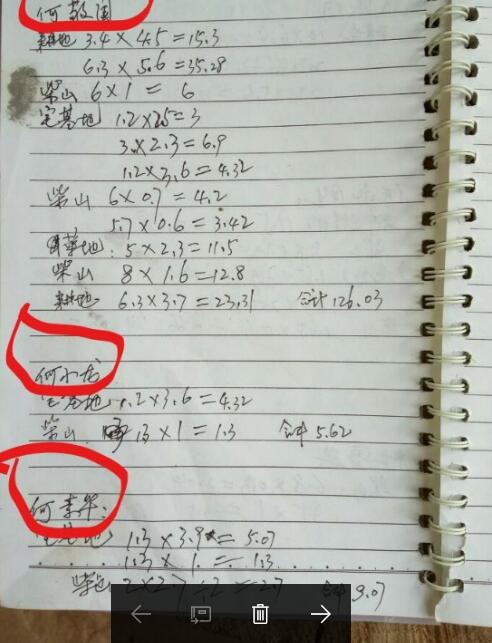 何敬国
耕地 3.4×4.5=15.3
6.3×5.6=35.28
柴山 6×1= 6
宅基地 1.2×2.5=3
3×2.3=6.9
1.2×3.6=4.32
柴山 6×0.7=4.2
5.7×0.6=3.42
地: 5×2.3=11.5
柴山 8×1.6=12.8
耕地 6.3×3.7=23.31 合计126.03
何小龙
宅基地 1.2×3.6=4.32
柴山 1.3×1=1.3 合计 5.62
何李华:
宅基地 1.3×3.9=5.07
1.3×1=1.3
柴山 2×2.7÷2=2.7 合计 9.07